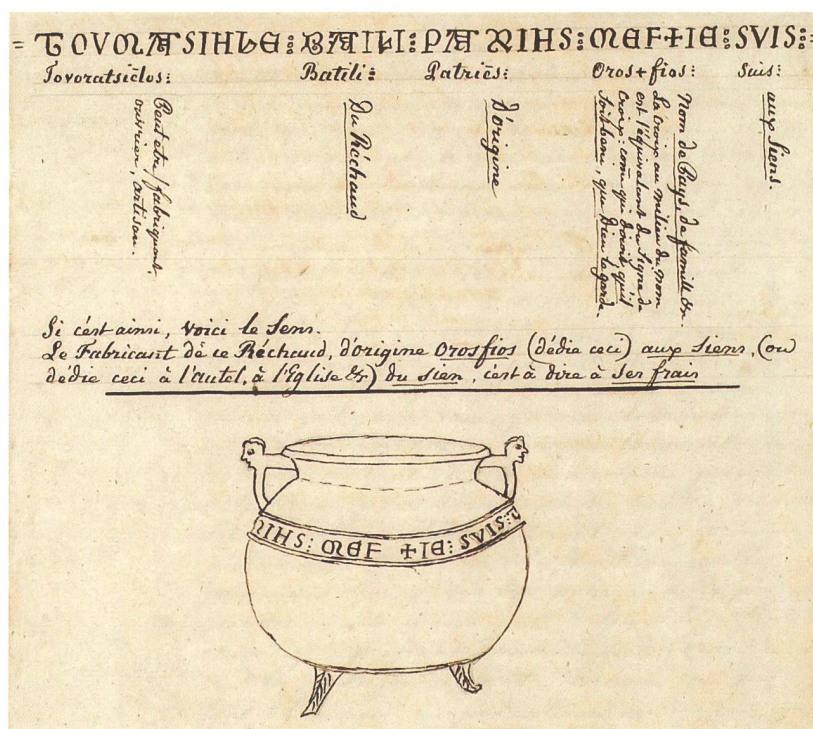 = TOVMATSIHLE: BATILI: PATRIHS: MEF+IE: SVIS: =
Tovoratsiēlos: Batili: Patriēs: Oros+fios: Suis:
Peut etre/fabriquant,
ouvrier, artisan.
Du Réchaud
D'origine
Nom de Pays, de famille &c.
La croix au milieu du nom
est l'équivalent du signe de
croix: come qui diroit qu'il
soit beni, que Dieu le garde.
aux Siens.
Si c'est ainsi, voici le Sens.
Le Fabricant de ce Réchaud, d'origine Orosfios (dédie ceci) aux siens, (ou
dédie ceci à l'autel, à l'Eglise &c) du sien, c'est à dire à ses frais
RIHS: MEF +IE: SVIS: T